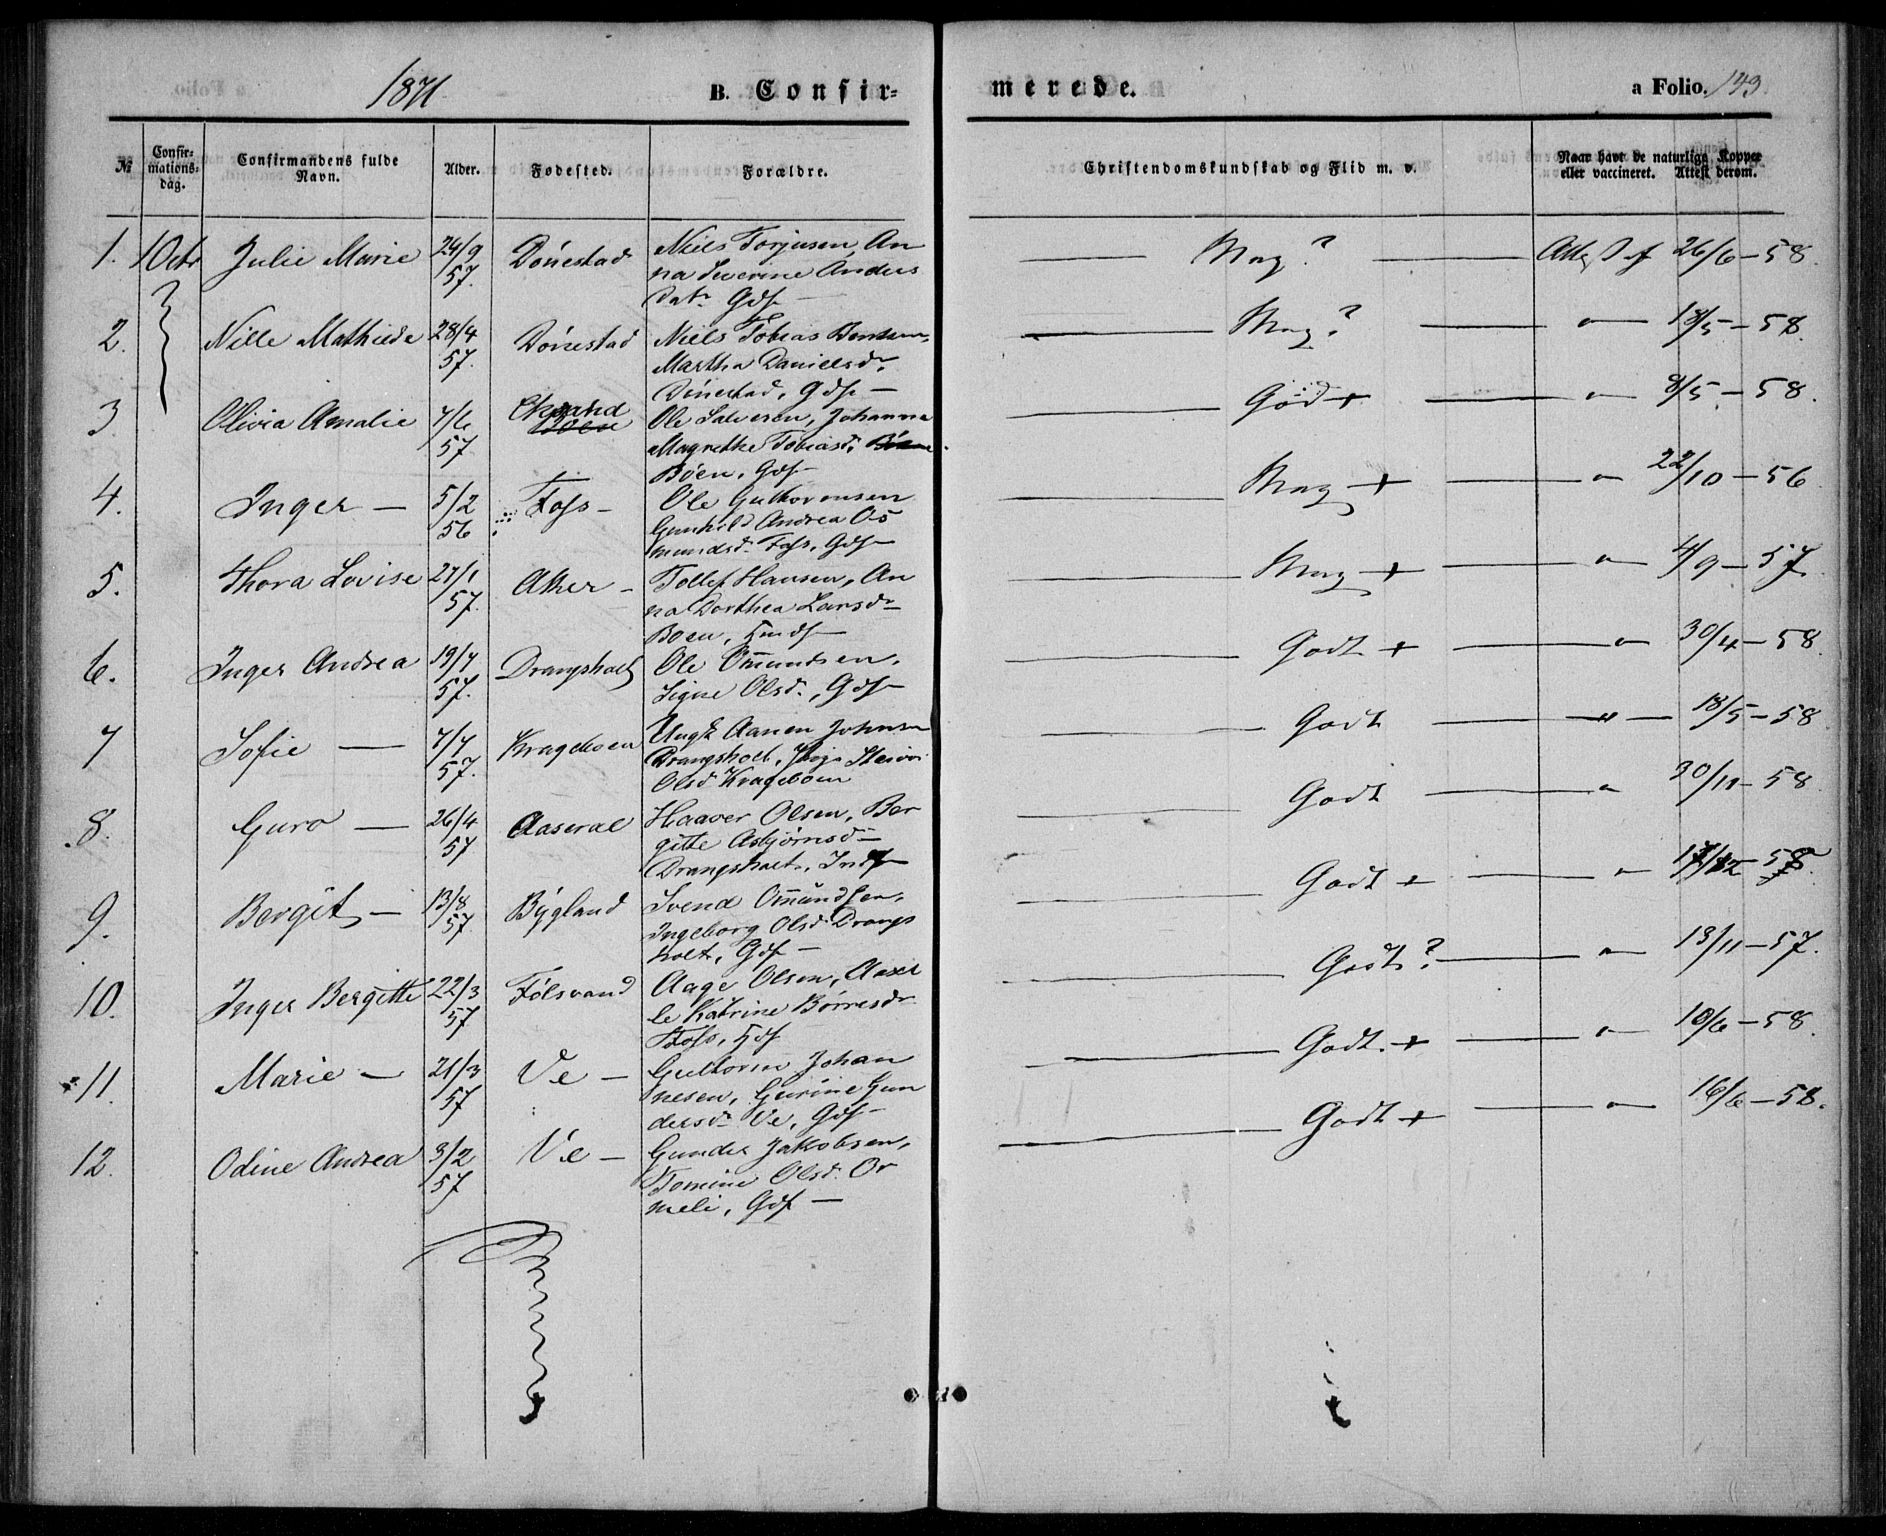 1871.
B. Confir-
merede.
a Folio. 143
№
Confir-
mations-
dag.
Confirmandens fulde
Navn.
Alder.
Fødested.
Forældre.
Christendomskundskab og Flid m. v.
Naar havt de naturlige Kopper
eller vaccineret. Attest derom.
1. 1 Octr Julie Marie 24/9 57. Dónestad Niels Torjusen, An
na Severine Anders
datr Gdf — Mag? — Attest af 26/6 - 58.
2. Nille Mathilde 28/4 57. Dónestad Niels Tobias
Martha Danielsd.
Dónestad, Gdf — Mag? — " — 18/5 - 58.
3 Olivia Amalie 7/6 57. Ole Salvesen, Johanna
Magrethe Tobiasd.
Bóen, Gdf — God + — " — 8/5 - 58.
4. Inger — 5/2 56 Foss — Ole Guthormsen
Gunhild Andrea Os
mundsd. Foss, Gdf — Mag + — " — 22/10 - 56
5. Thora Lovise 27/1 57. Aker — Tollef Hansen, An
na Dorthea Larsdr
Boen, Hmdf — Mag + — " — 4/9 - 57.
6. Inger Andrea 19/7 57. Drangsholt Ole Omundsen,
Signe Olsd., Gdf — Godt + — " — 30/4 - 58.
7 Sofie — 7/7 57. Krageboen Ungk Aanen Johnsen
Drangsholt,
Olsd Krageboen Godt — " — 18/5 - 58
8. Guro — 26/4 57 Aaseral Haaver Olsen, Ber
gitte Asbjørnsd —
Drangsholt, Indf — Godt — " — 30/11 - 58
9. Bergit — 13/8 57 Bygland Svend Omundsen,
Ingeborg Olsd. Drangs
holt, Gdf — Godt + — " — 17/12 - 58.
10. Inger Bergitte 22/3 57 Fólsvand Aage Olsen, Aase
le Katrine Bórresdr
Foss, Hdf Godt? — " — 13/11 - 57.
11. Marie — 21/3 57 Ve — Guttorm Johan
nesen, Gurine Gun
dersdr Ve, Gdf — Godt. + — " — 10/6 - 58.
12. Odine Andrea 3/2 57 Ve — Gunder Jakobsen,
Tomine Olsd. Or
meli, Gdf — Godt + — " — 16/6 - 58.